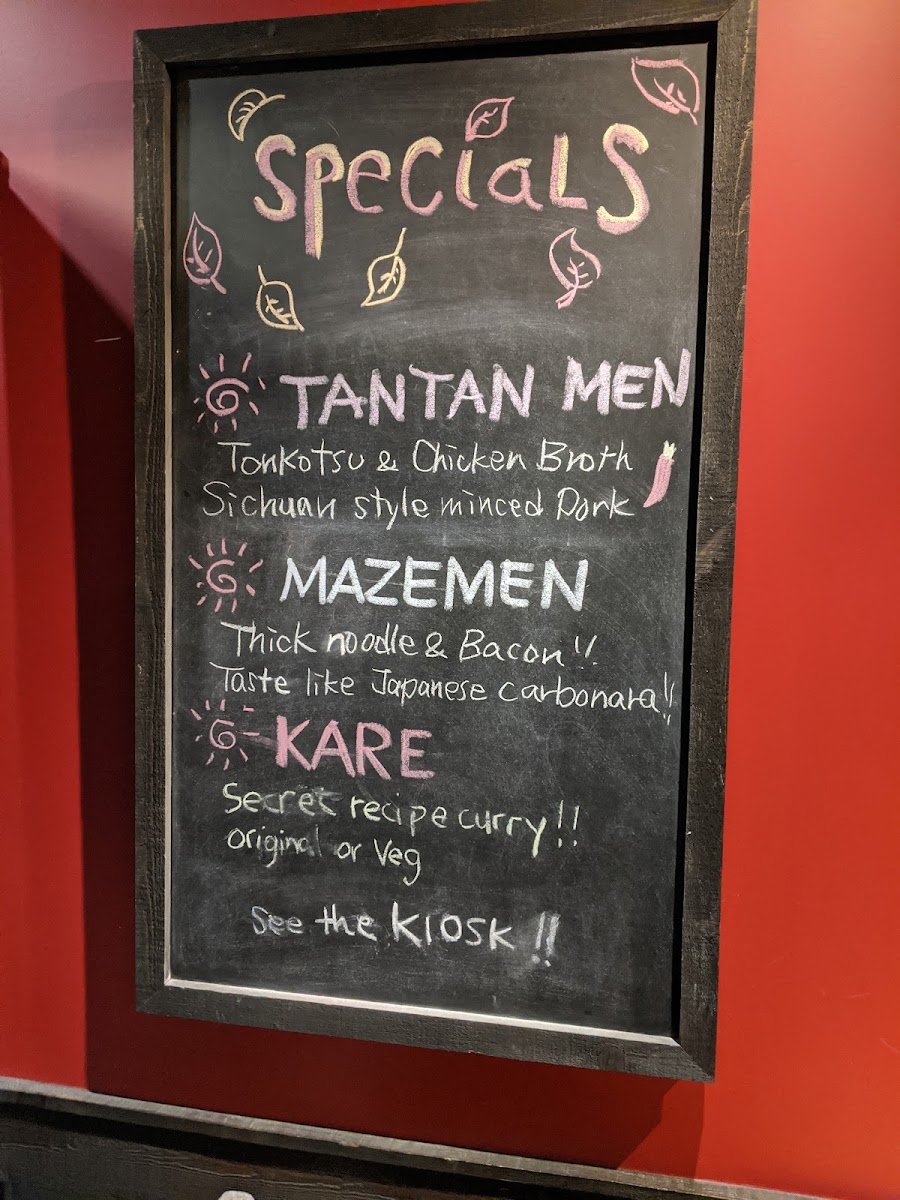 SPeCiaLS
TANTAN MEN
Tonkotsu & Chicken Broth
Sichuan style minced Pork
MAZEMEN
Thick noodle & Bacon!!
Taste like Japanese carbonara!!
KARE
Secret recipe curry!!
original or Veg
See the KIOSK!!